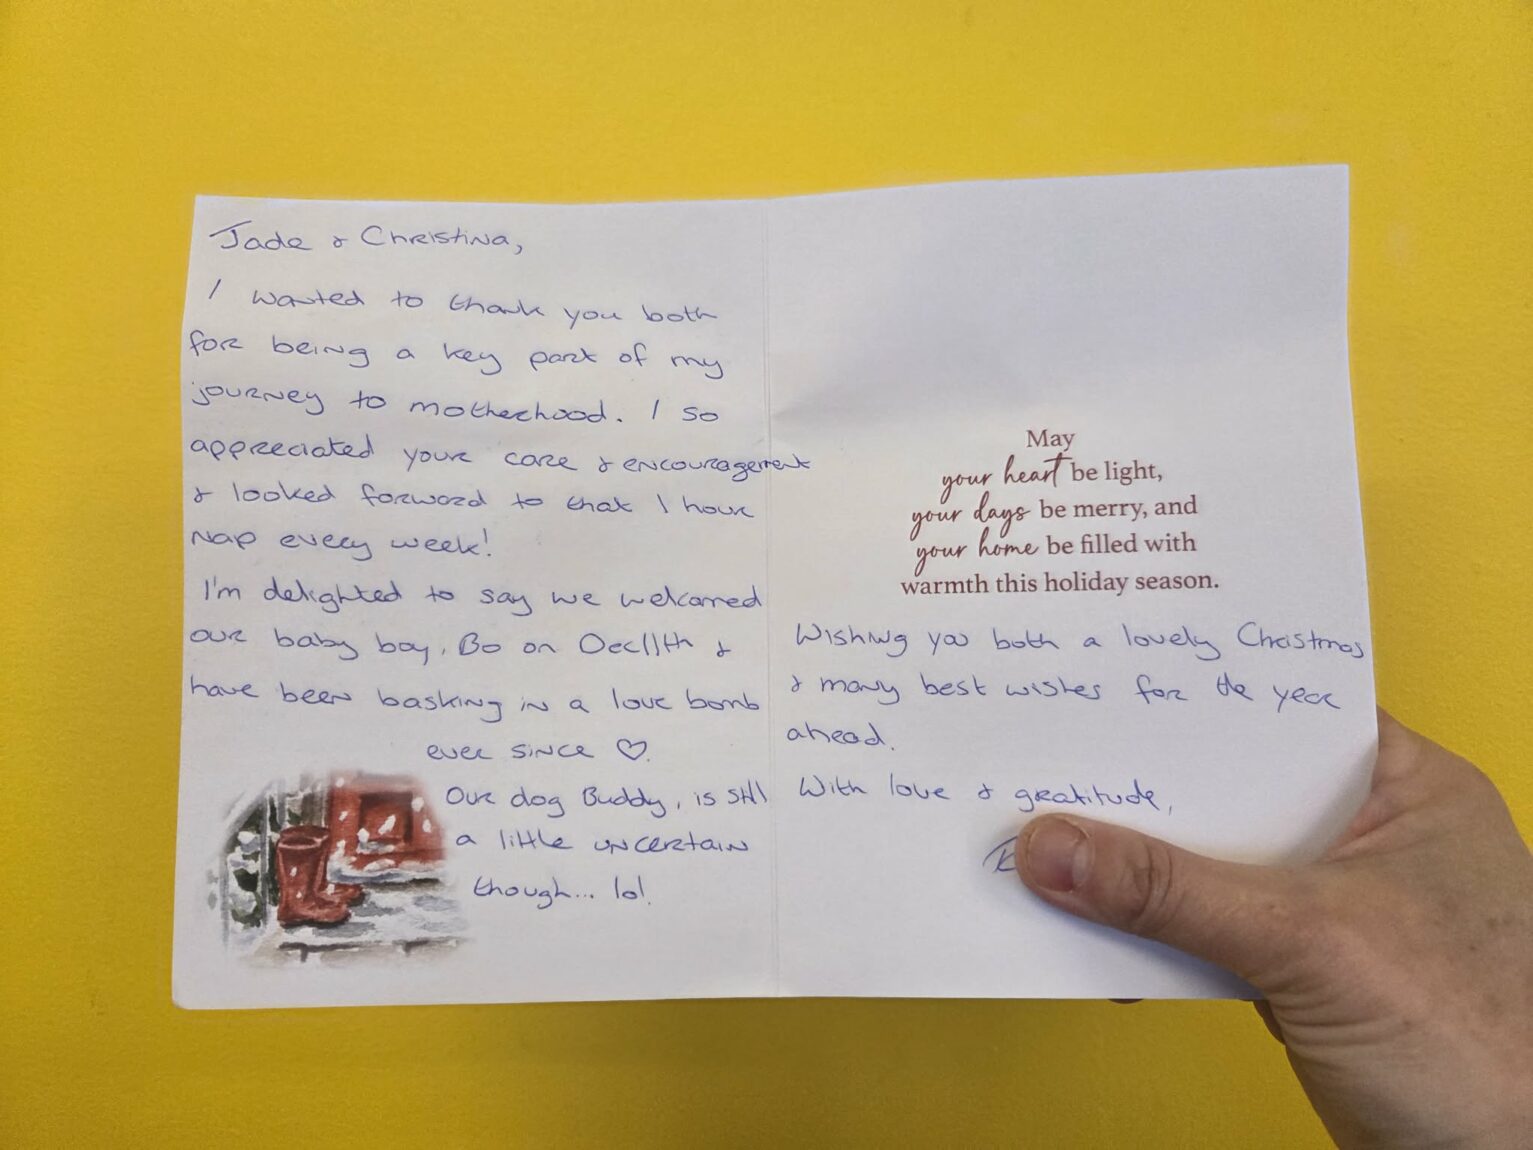 Jade & Christina,
I wanted to thank you both
for being a key part of my
journey to motherhood. I so
appreciated your care & encouragement
& looked forward to that 1 hour
nap every week!
I'm delighted to say we welcomed
our baby boy, Bo on Dec 11th &
have been basking in a love bomb
ever since ♡.
Our dog Buddy, is still
a little uncertain
though... lol.
May
your heart be light,
your days be merry, and
your home be filled with
warmth this holiday season.
Wishing you both a lovely Christmas
& many best wishes for the year
ahead.
With love & gratitude,